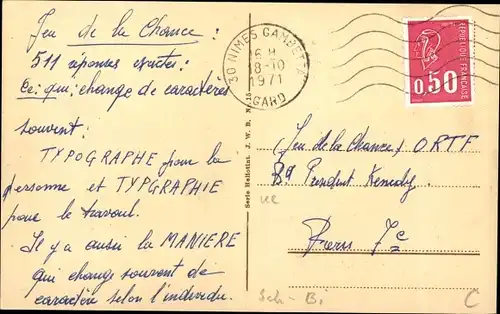 Jeu de la Chance :
511 réponses exactes :
Ce qui change de caractère
souvent :
TYPOGRAPHE pour la
personne et TYPGRAPHIE
pour le travail.
Il y a aussi la MANIERE
qui change souvent de
caractère selon l'individu.
30 NIMES GAMBETTA
18-10
1971
GARD
REPUBLIQUE FRANÇAISE
0,50
Serie Heliotint. J. W. B. Nr. 15
(Jeu de la Chance) ORTF
Bd Président Kennedy
Paris
Sch - Bi